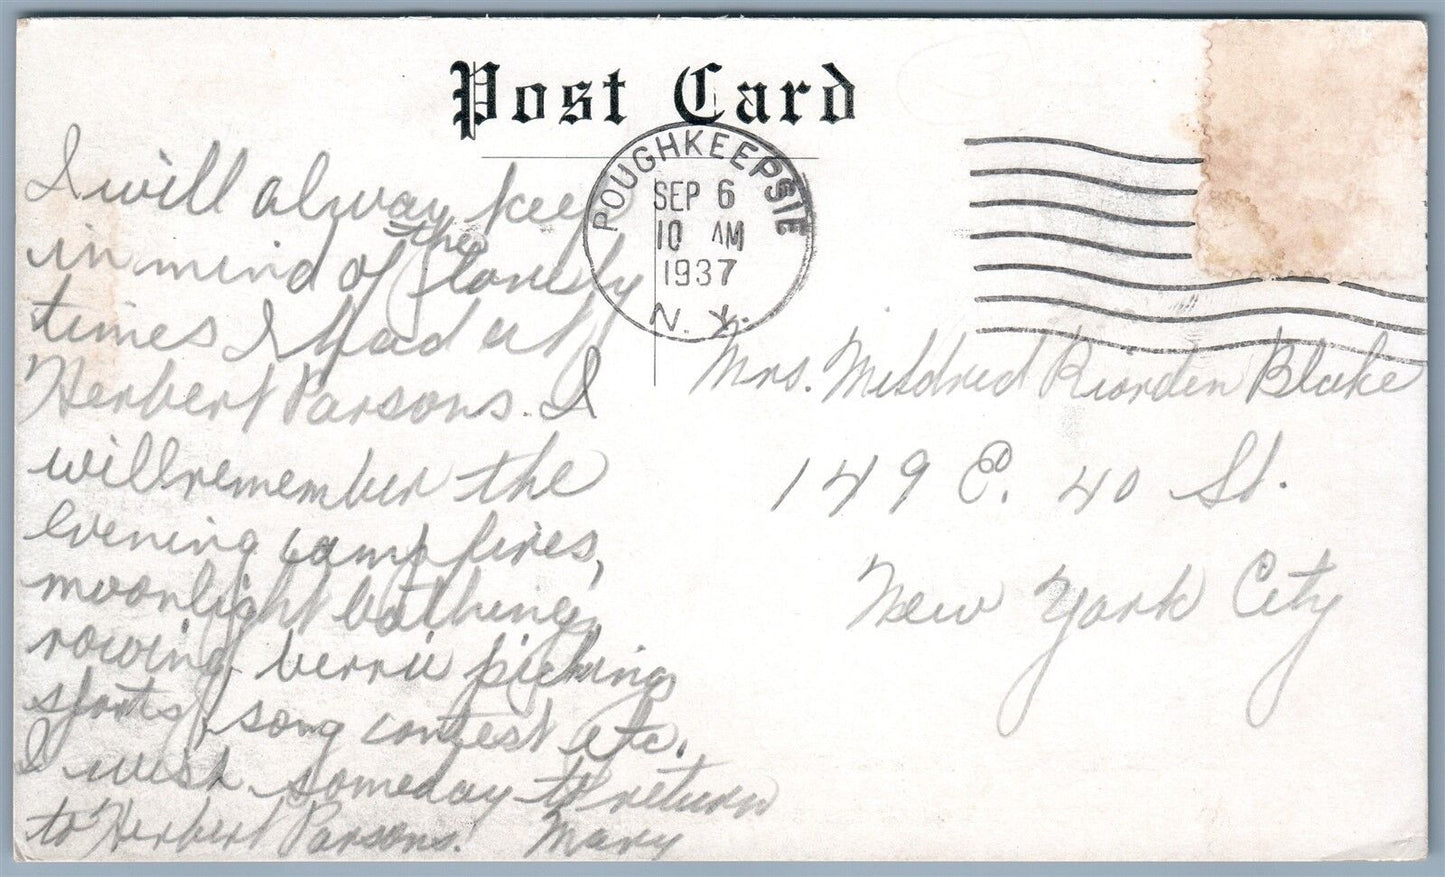 Post Card
POUGHKEEPSIE
SEP 6
10 AM
1937
N. Y.
I will alway keep
in mind of the lovely
times I had at
Herbert Parsons. I
will remember the
evening campfires,
moonlight bathing,
rowing, berrie picking
sports, song contest etc.
I wish someday to return
to Herbert Parsons. Mary
Mrs. Mildred Riorden Blake
149 E. 40 St.
New York City